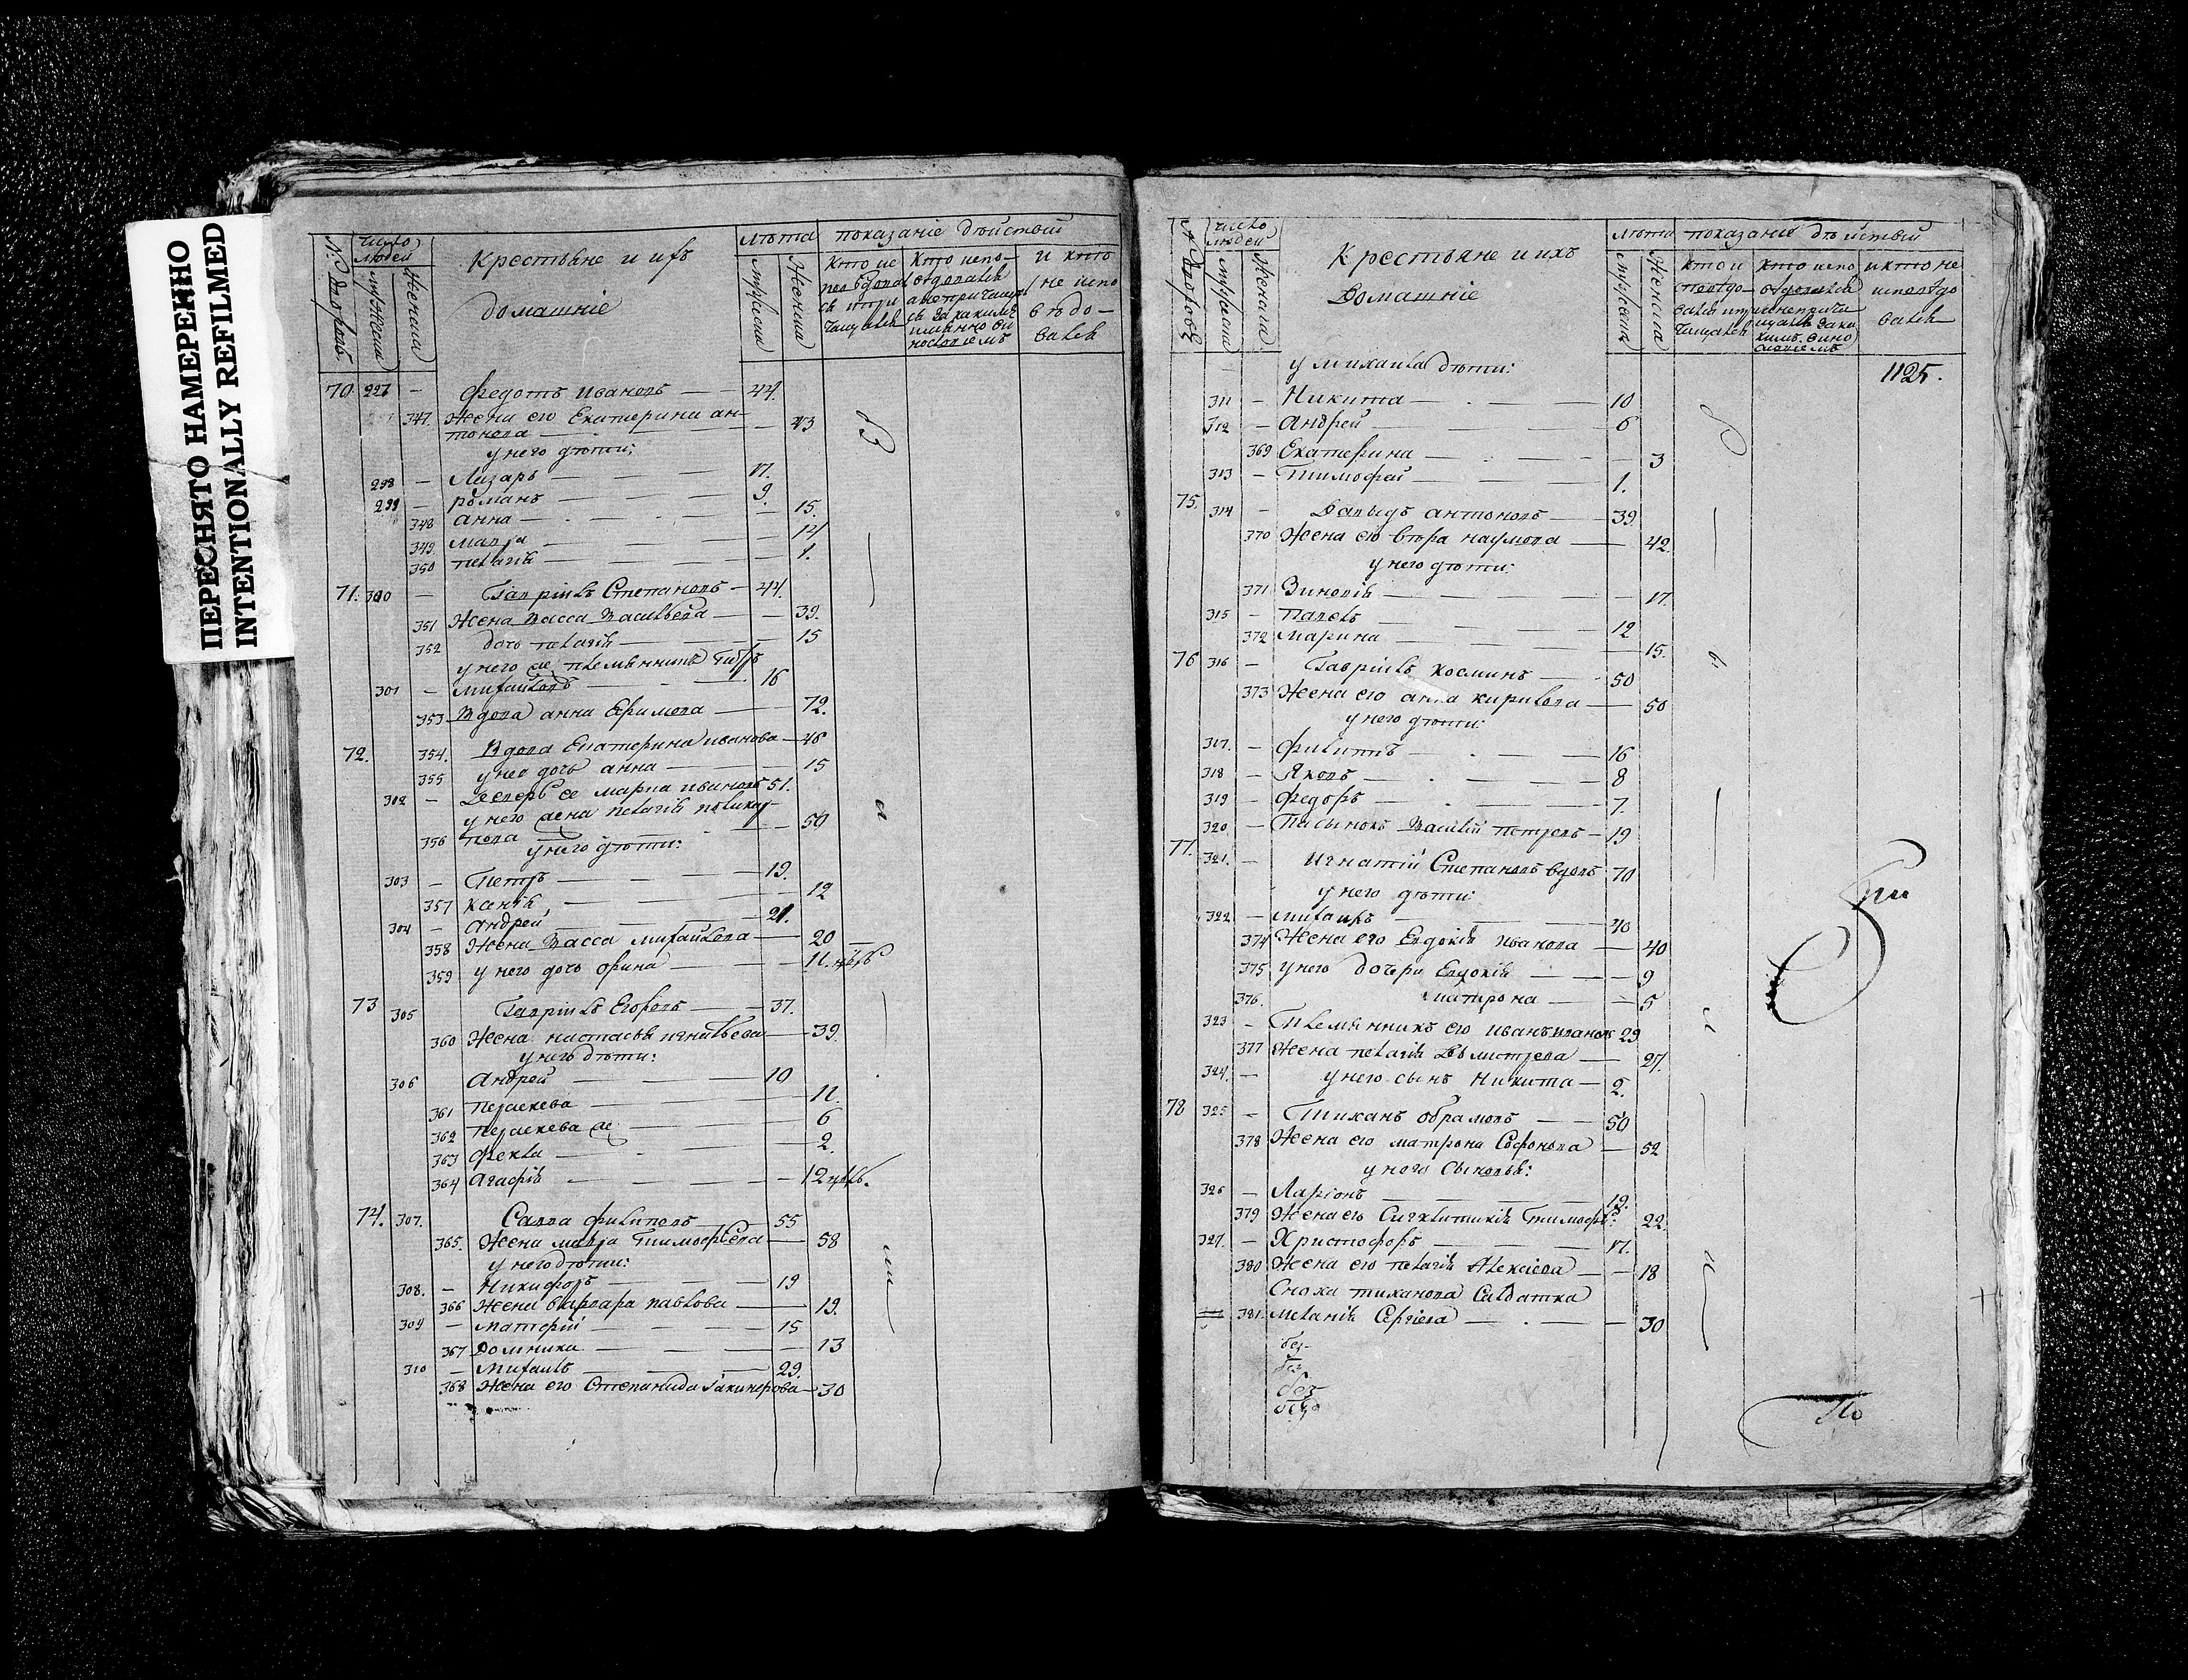 ПЕРЕСНЯТО НАМЕРЕННО
INTENTIONALLY REFILMED
№ дворовъ
число людей
мужеска
женска
Крестьяне и ихъ
домашніе
лѣта
мужеска
женска
показаніе дѣйствій
кто исповѣдовался и причащался
кто исповѣдовался а не причащался за какимъ имянно винословіемъ
и кто не исповѣдовался
70. 297 – Федотъ Ивановъ — 44.
347. Жена его Екатерина ан-
тонова — 43
у него дѣти:
298 – Лазарь — 17.
299 – романъ — 9.
348 анна — 15.
349. мавра — 14
350 пелагія — 1.
71. 300 – Гавріилъ Степановъ – 44.
351 Жена Васса Васильева — 39.
352 дочь пелагія — 15
у него же племянникъ Петръ
301 – михайловъ — 16
353 Вдова анна Ефимова — 72.
72. 354. Вдова Екатерина иванова — 48
355 у нее дочь анна — 15
302 – Деверь ее иванов 51.
у него жена пелагія поликар-
356 пова — 50
у него дѣти:
303 – Петръ — 19.
357 — 12
304 – Андрей — 21.
358 Жена Васса михайлова — 20
359 у него дочь орина — 11.
73 305 Гавріилъ Егоровъ — 37.
360 Жена настасья игнатьева — 39.
у него дѣти:
306 Андрей — 10
361 Параскева — 11.
362 Параскева же — 6
363 Фекла — 2.
364 Агафія — 12
74. 307. Савва филиповъ — 55
365. Жена мавра Тимофѣева — 58
у него дѣти:
308. – Никифоръ — 19
366 Жена варвара павлова — 19.
309 – матфій — 15
367 Домника — 13
310 – Михаилъ — 29.
368 Жена его Степанида — 30
№ дворовъ
число людей
мужеска
женска
Крестьяне и ихъ
Домашніе
лѣта
мужеска
женска
показаніе дѣйствій
кто исповѣдовался и причащался
кто исповѣдовался а не причащался за какимъ виннословіемъ
и кто не исповѣдовался
1125.
у михаила дѣти:
311 – Никита — 10
312 – Андрей — 6
369 Екатерина — 3
313 – Тимофей — 1.
75. 314 – Давыдъ антоновъ — 39.
370 Жена его вѣра наумова — 42.
у него дѣти:
371 Зиновія — 17.
315 – Павелъ — 12
372 марина — 15.
76 316 – Гавріилъ косминъ — 50
373 Жена его анна кирилова — 50
у него дѣти:
317. – Филиппъ — 16
318 – Яковъ — 8
319 – Федоръ — 7.
320 – Пасынокъ Василій петровъ – 19
77. 321. – Игнатій Степановъ вдовъ 70
у него дѣти:
322 – михаилъ — 40
374 Жена его Евдокія иванова — 40
375 у него дочери Евдокія — 9
376. матрона — 5
323 – Племянникъ его иванъ ивановъ 29
377 Жена пелагія Дѣмитрева — 27.
324. – у него сынъ Никита — 2.
78 325 – Тиханъ абрамовъ — 50
378 Жена его матрона Софонова — 52
у него сыновья:
326 – Ларіонъ — 19.
379 Жена его Сигклитикія Тимофѣ: 22
327. – Христофоръ — 17.
380 Жена его пелагія Алексіева — 18
Сноха тиханова Салдатка
381. Меланія Сергіева — 30
При
По